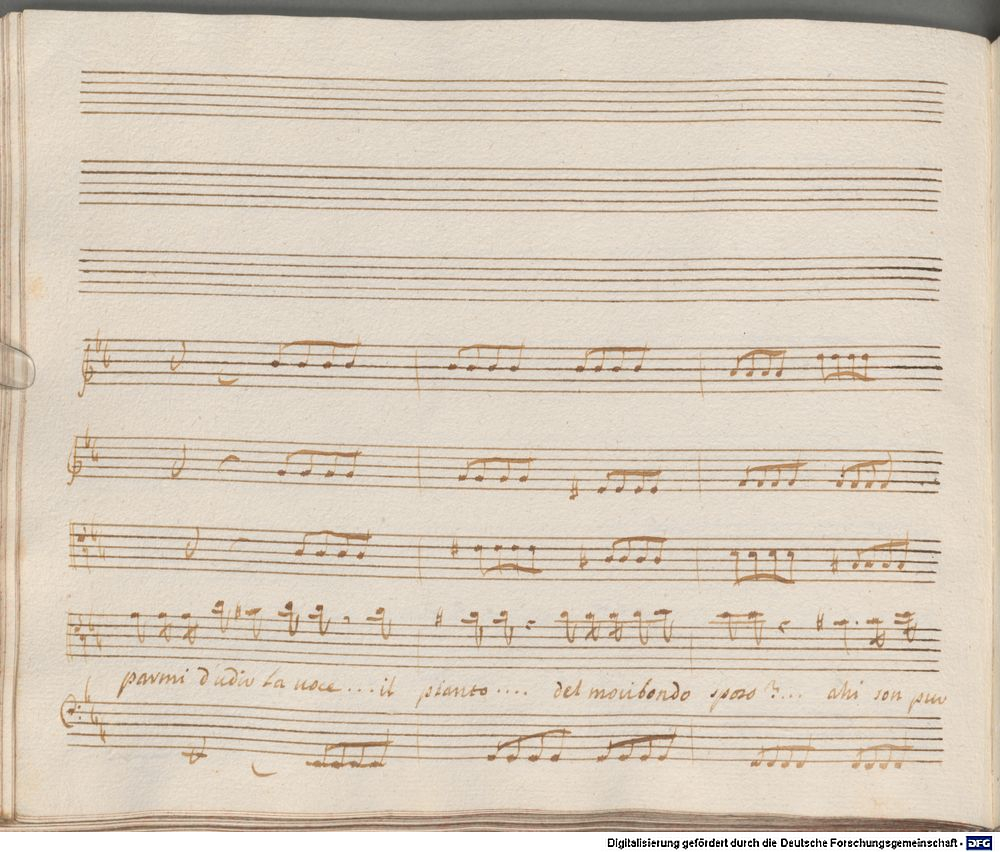 parmi d'udir la voce ... il pianto .... del moribondo sposo?... ahi son pur
Digitalisierung gefördert durch die Deutsche Forschungsgemeinschaft - DFG